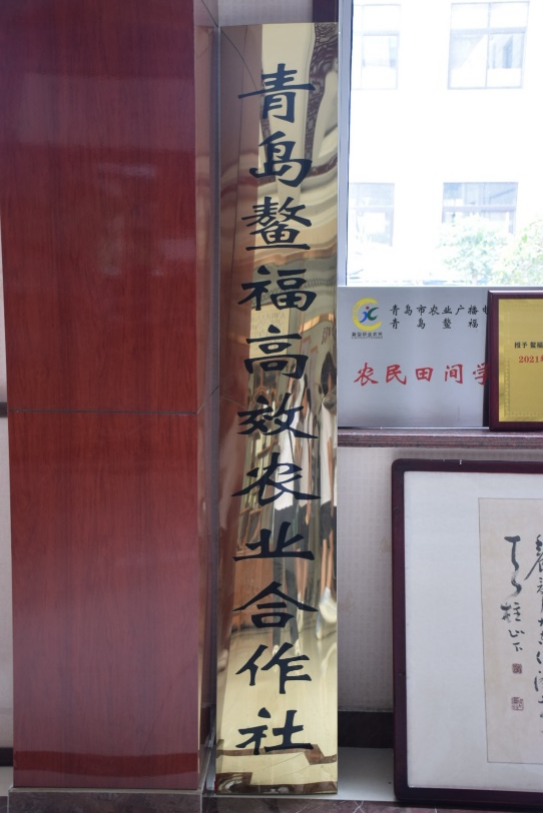 青岛鳌福高效农业合作社
青岛市农业广播电
青岛鳌福
农民田间学
授予 鳌福
2021